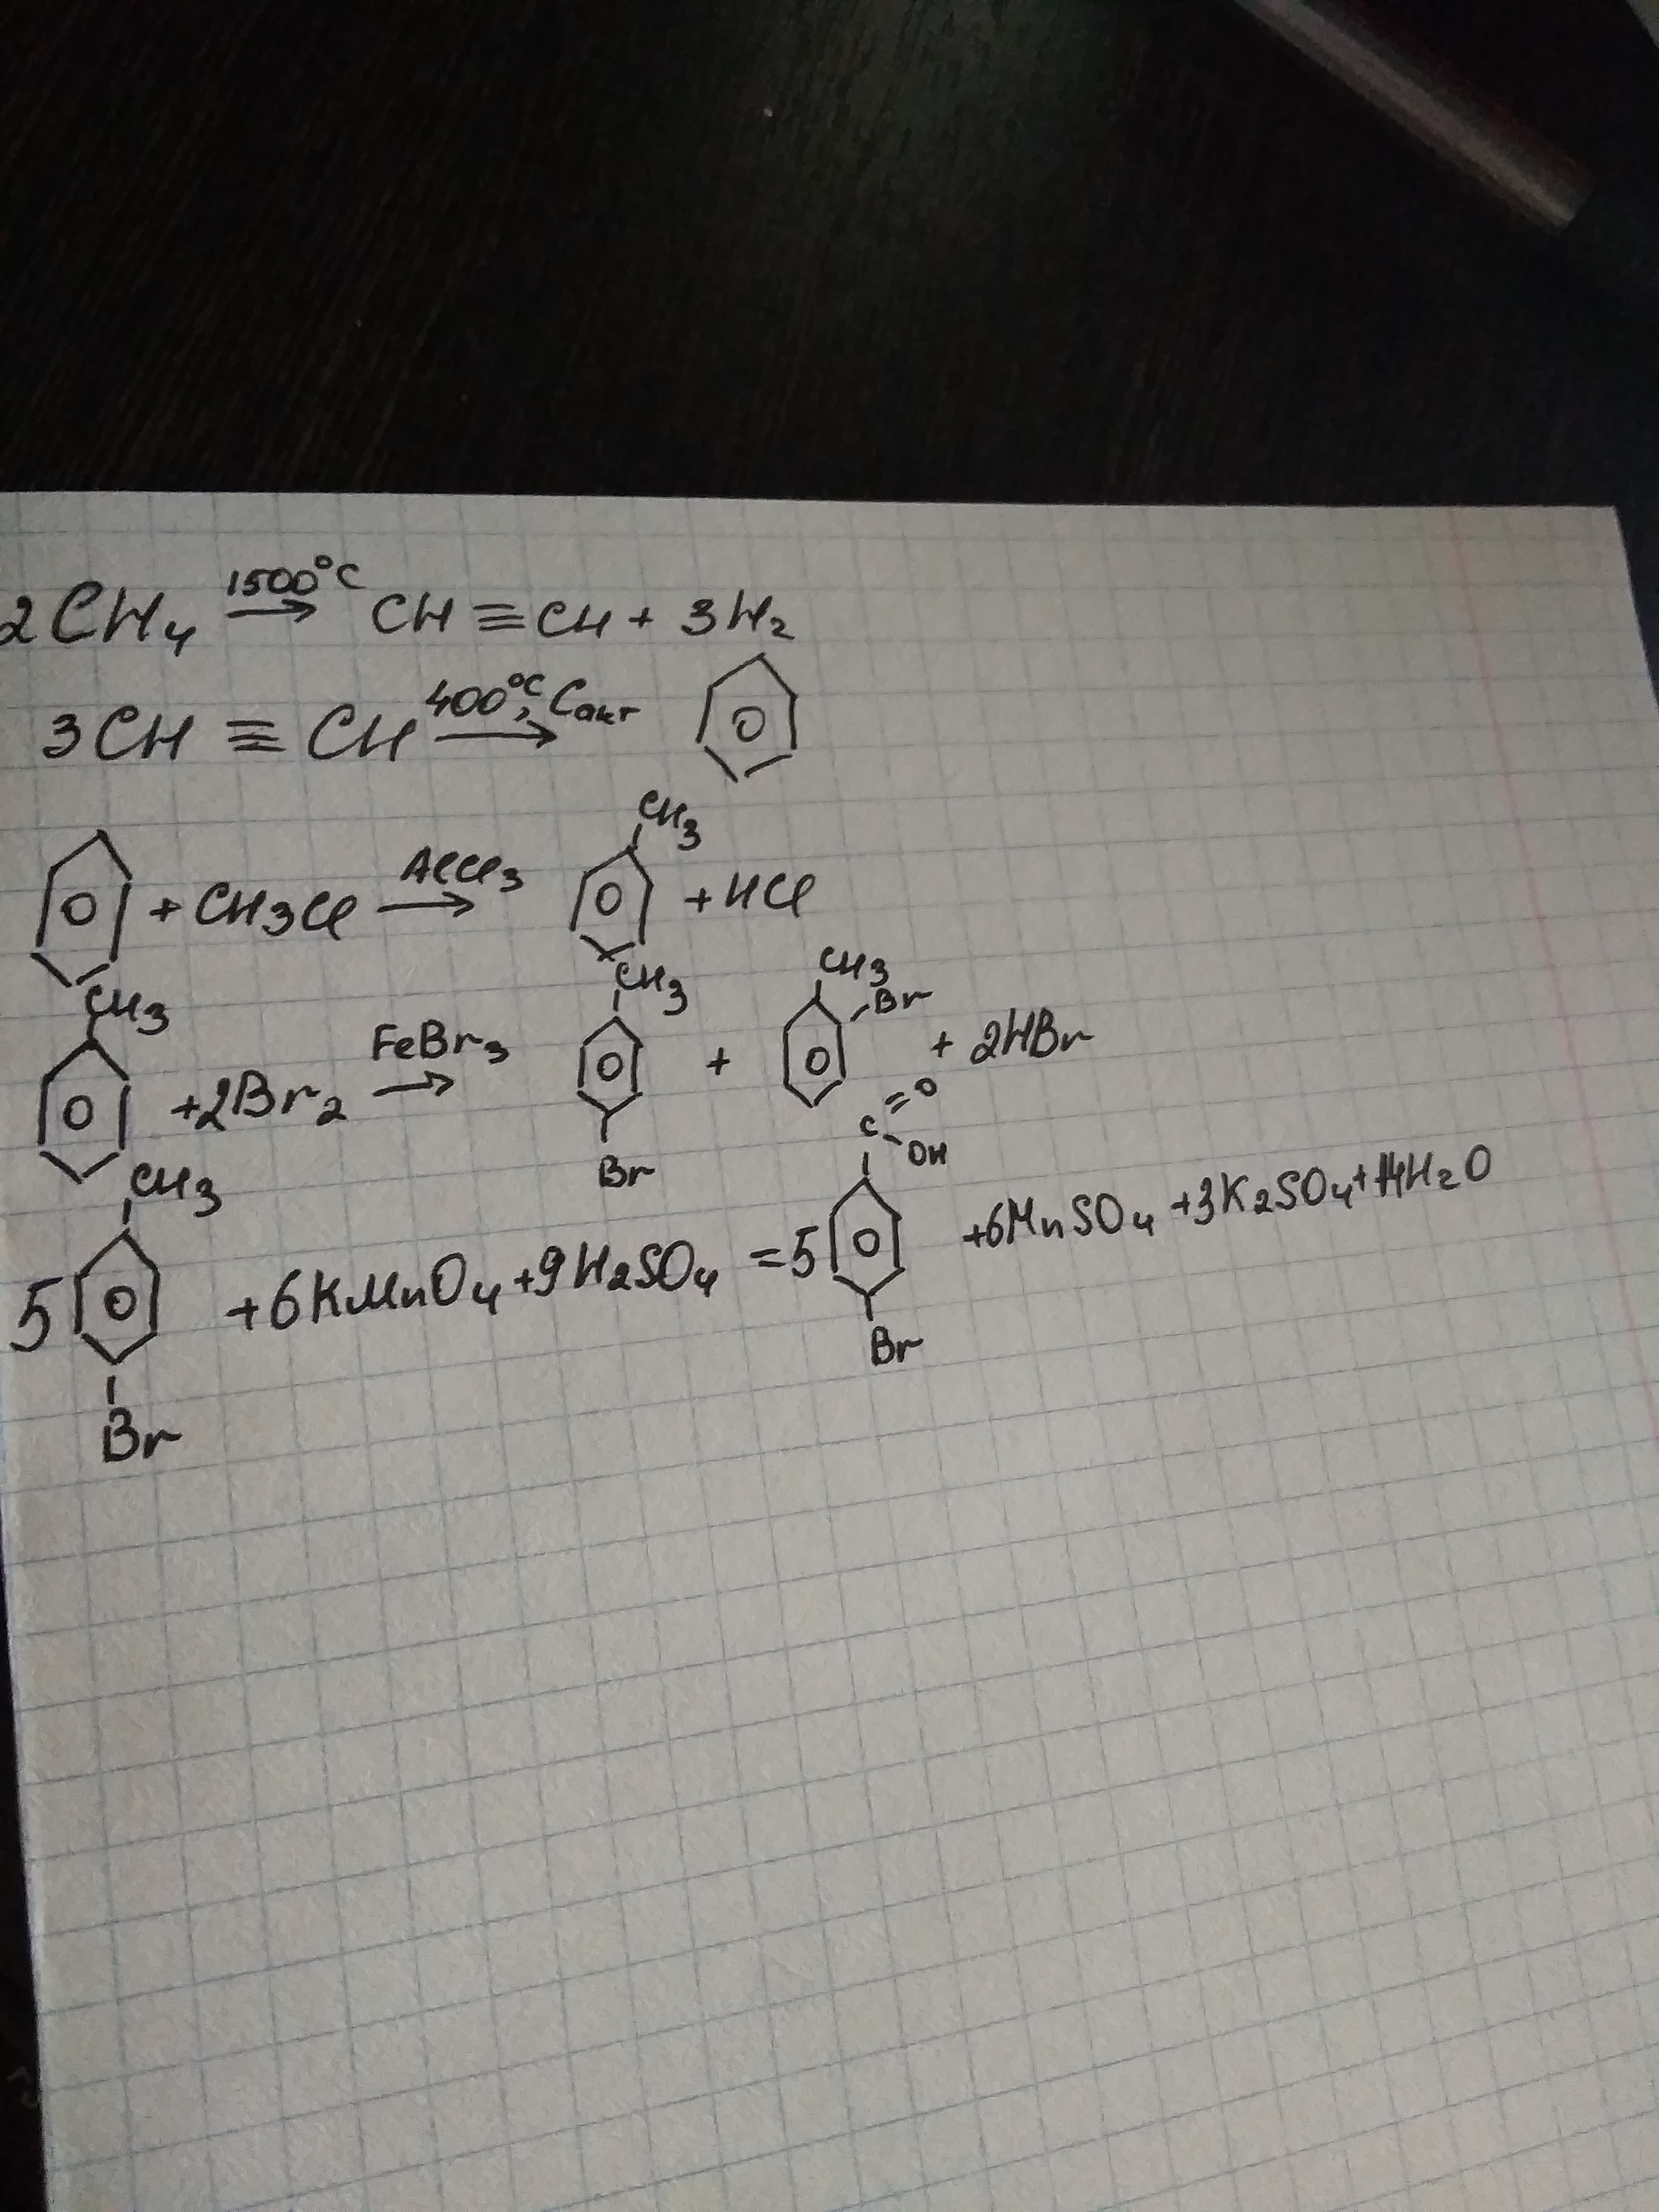 2CH₄ 1500°C → CH≡CH + 3H₂
3CH≡CH 400°C, Cакт →
CH₃
+ CH₃Cl AlCl₃ → + HCl
CH₃ CH₃ CH₃ Br
+2Br₂ FeBr₃ → + + 2HBr
Br
CH₃ C =O OH
5 +6KMnO₄+9H₂SO₄ =5 +6MnSO₄+3K₂SO₄+14H₂O
Br Br